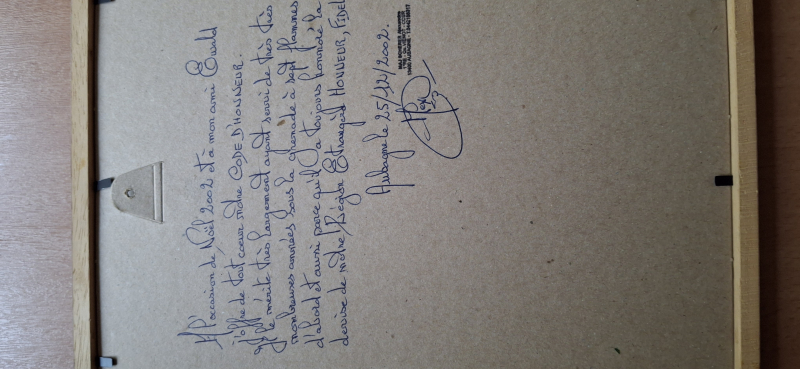 A l'occasion de Noël 2002 et à mon ami Ewald
j'offre de tout coeur notre CODE D'HONNEUR.
Il le mérite très largement ayant servi de très très
nombreuses années sous la grenade à sept flammes
d'abord et aussi parce qu'il a toujours honoré la
devise de notre Légion Etrangère HONNEUR, FIDEL
Aubagne le 25/12/2002.